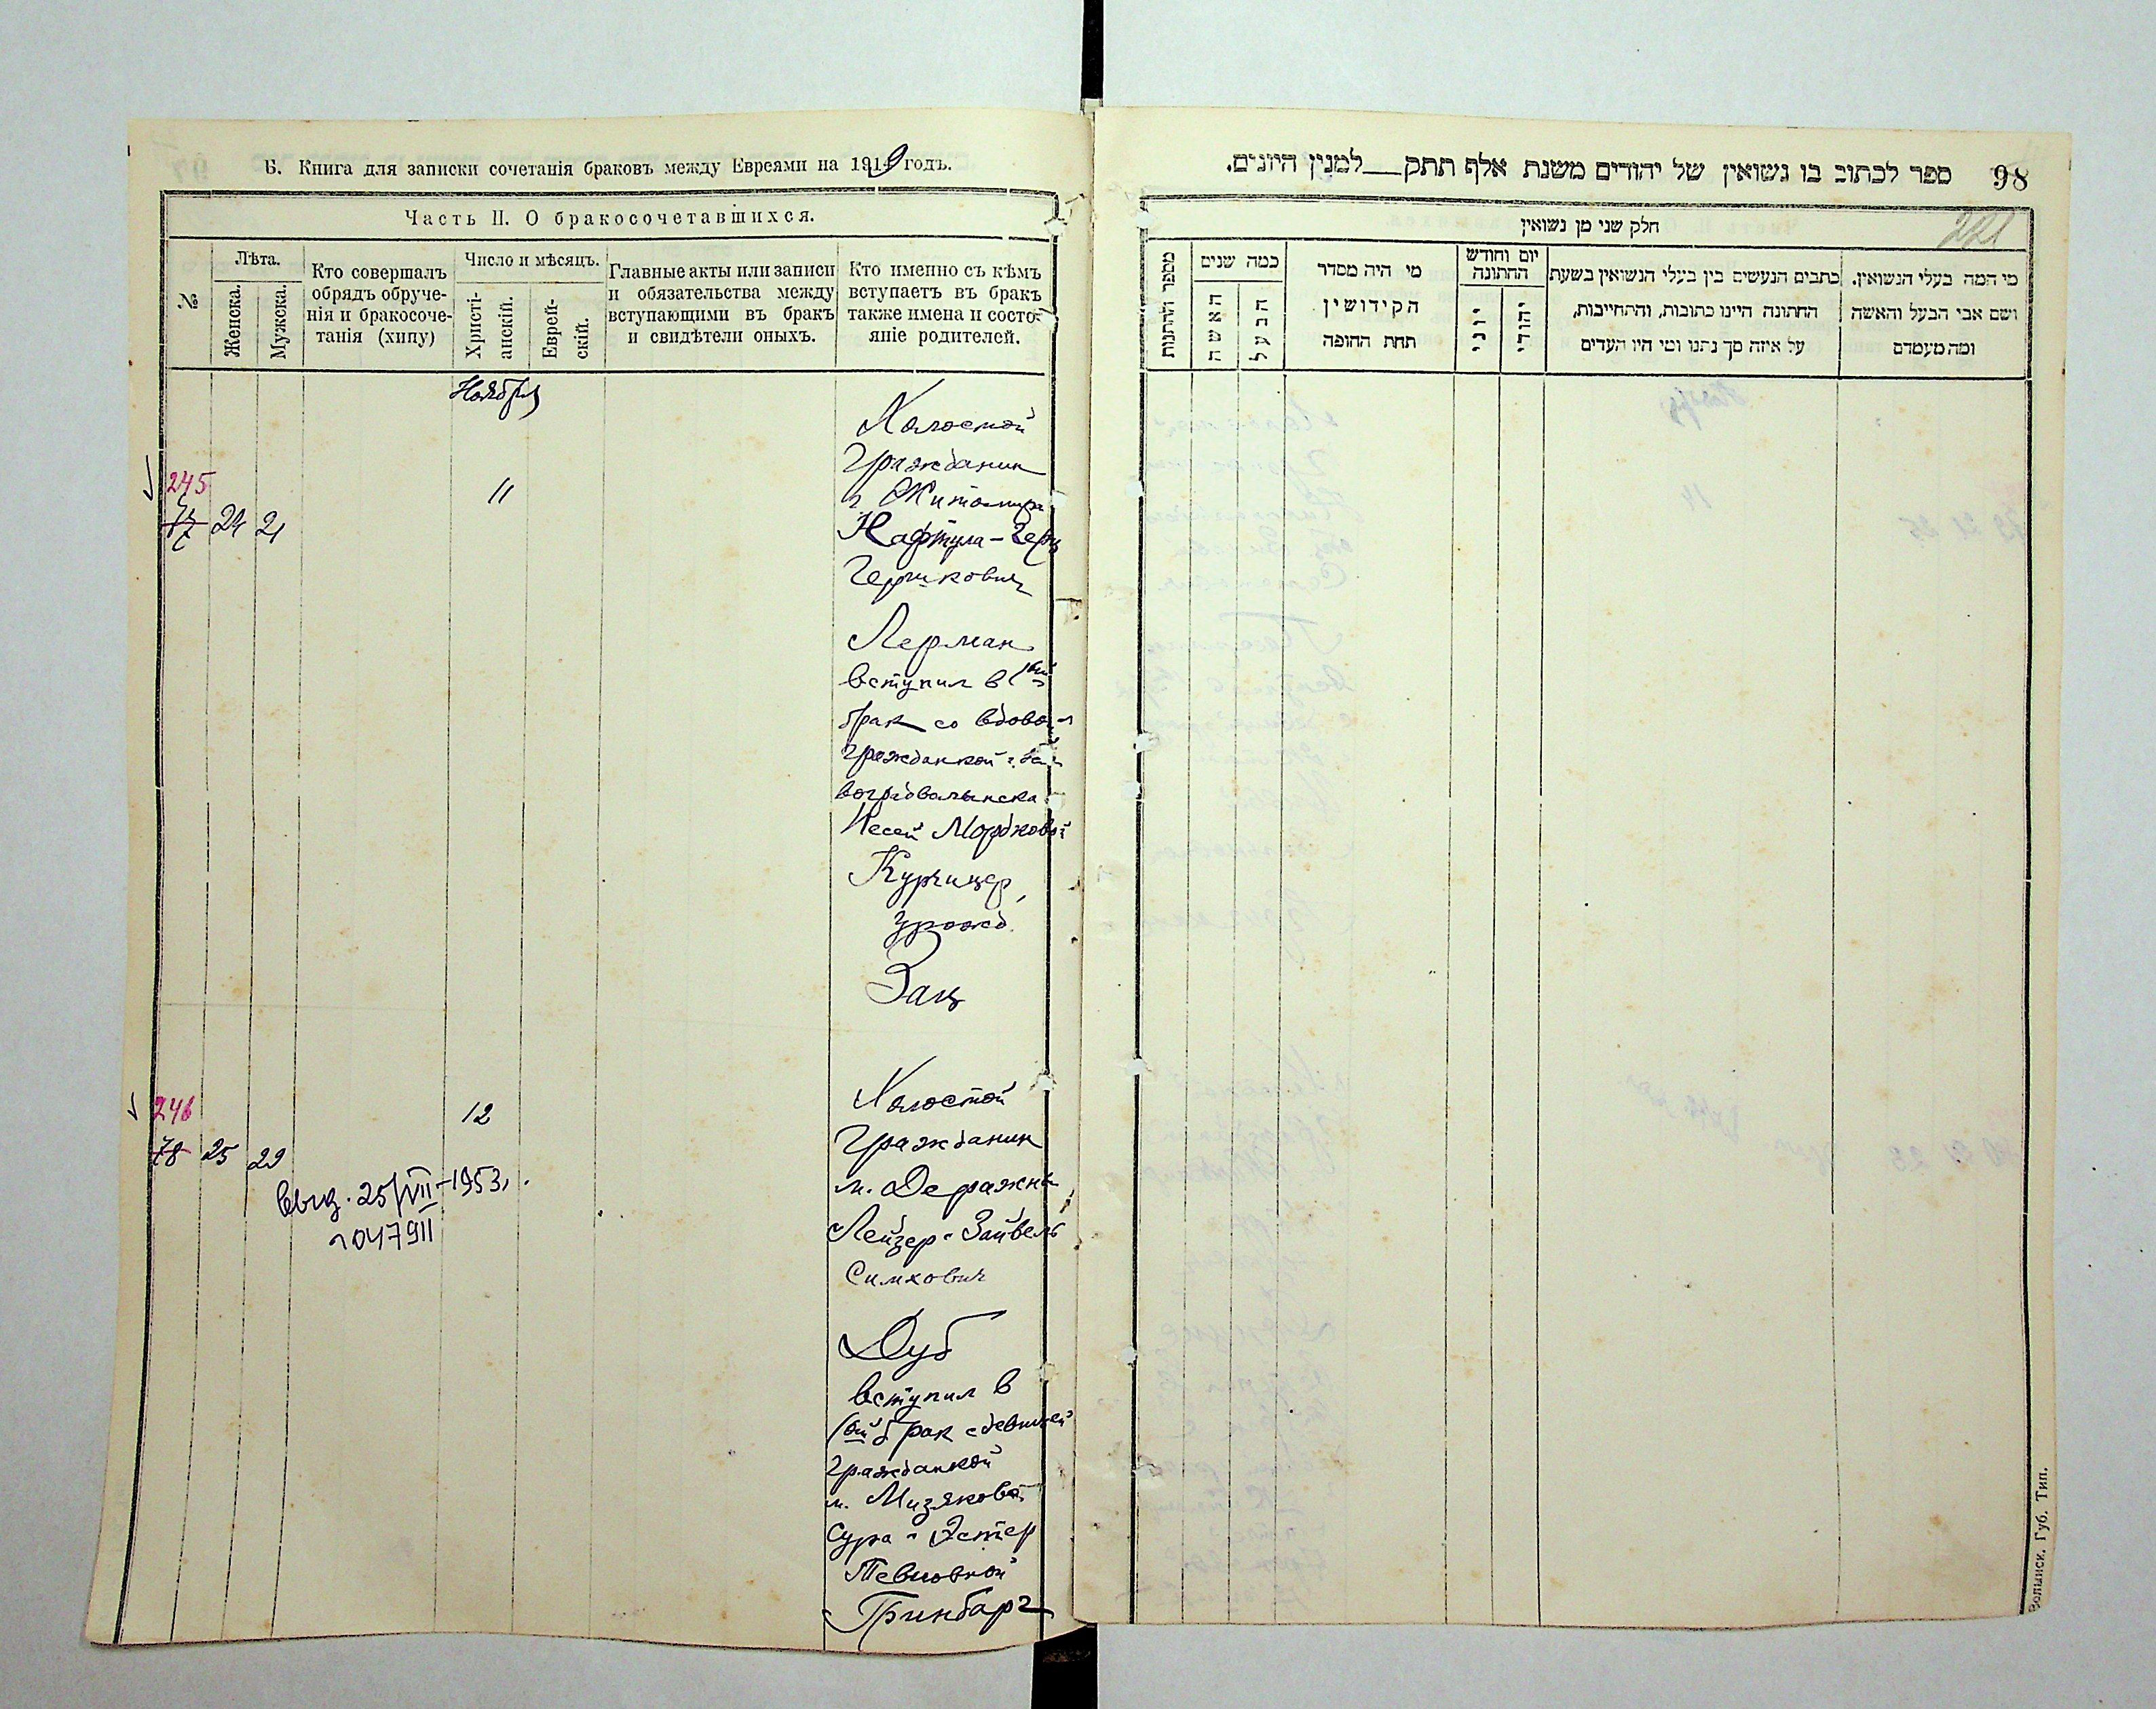 Б. Книга для записки сочетанія браковъ между Евреями на 1919 годъ.
Часть II. О бракосочетавшихся.
№
Лѣта.
Женска.
Мужска.
Кто совершалъ
обрядъ обруче-
нія и бракосоче-
танія (хипу)
Число и мѣсяцъ.
Христі-
анскій.
Еврей-
скій.
Главные акты или записи
и обязательства между
вступающими въ бракъ
и свидѣтели оныхъ.
Кто именно съ кѣмъ
вступаетъ въ бракъ
также имена и состо-
яніе родителей.
Ноября
245
77 24 21
11
Холостой
Гражданин
г. Житомира
Нафтула-Герц
Гершкович
Лерман
вступил в 1ый
брак со вдовой
гражданкой г. Но
воградволынска
Песей Мордковой
Курчицер,
урожд.
Зак
246
78 25 29
12
выд. 25/VII-1953г.
Холостой
Гражданин
м. Деражни
Лейзер-Зайвель
Симхович
Дуб
вступил в
1ый брак с девицей
гражданкой
м. Мизякова
Сура-Эстер
Гринбарг
98
ספר לכתוב בו נשואין של יהודים משנת אלף תתק___למנין היונים.
221
חלק שני מן נשואין
מספר החתונות
כמה שנים
האשה
הבעל
מי היה מסדר
הקידושין
תחת החופה
יום וחודש
החתונה
יוני
יהודי
כתבים הנעשים בין בעלי הנשואין בשעת
החתונה היינו כתובות, והתחייבות,
על איזה סך נתנו ומי היו העדים
מי המה בעלי הנשואין.
ושם אבי הבעל והאשה
ומה מעמדם
Волынск. Губ. Тип.